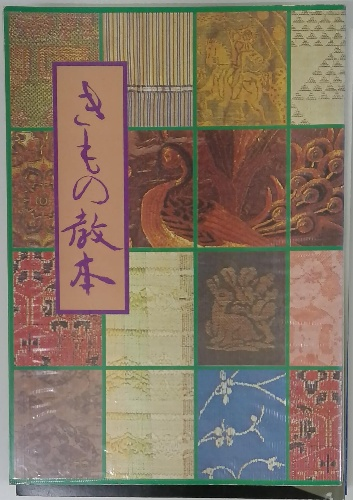 きもの教本